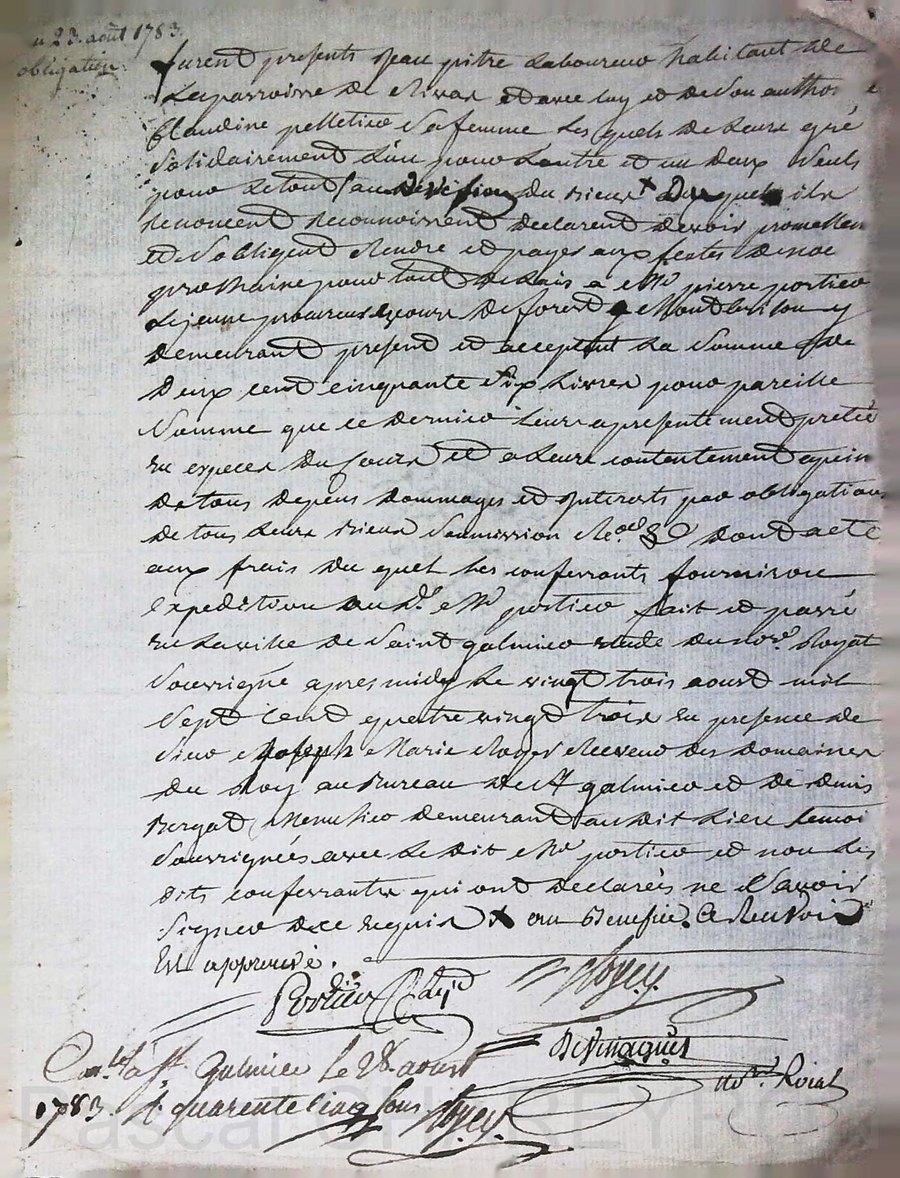 du 23. août 1783.
obligation
furent presents jean pitre laboureur habitant de
la parroisse de Rivas et avec luy et de son authorité
Claudine pelletier sa femme les quels de leurs gré
solidairement l'un pour l'autre et un deux seuls
pour le tout sans division du mieux x du quel ils
renoncent reconnoissent declarent devoir promettent
et s'obligent rendre et payer aux fettes de noe
prochaine pour tout delais a Me pierre portier
le jeune procureur ez cours de forest a Montbrison y
demeurant present et acceptant la somme de
deux cent cinquante six livres pour pareille
somme que ce dernier leurs a presentement pretée
en especes du cours et a leurs contentement a peine
de tous depens dommages et interests par obligations
de tous leurs biens soumission Reon & dont acte
aux frais du quel les conferrants fourniront
expedition au d. Me portier fait et passé
en la ville de Saint galmier etude du nore Royal
soussigné apres midy le vingt trois aoust mil
sept cent quatre vingt trois en presence de
sieur Joseph Marie Royer Receveur des domaines
du Roy au bureau de St galmier et de denis
Bergat Menusier demeurant au dit lieu temoins
soussignés avec le dit Me portier et non les
dits conferrants qui ont declarés ne sçavoir
signer de ce requis x au Benefice. Ce Renvoi
Est approuvé.
Portier Royer
Desmagües
nore Roial
Con.lé à St. Galmier le 28 aoust
1783 R. quarente cinq sous Royer
Pascal CHAREYRON